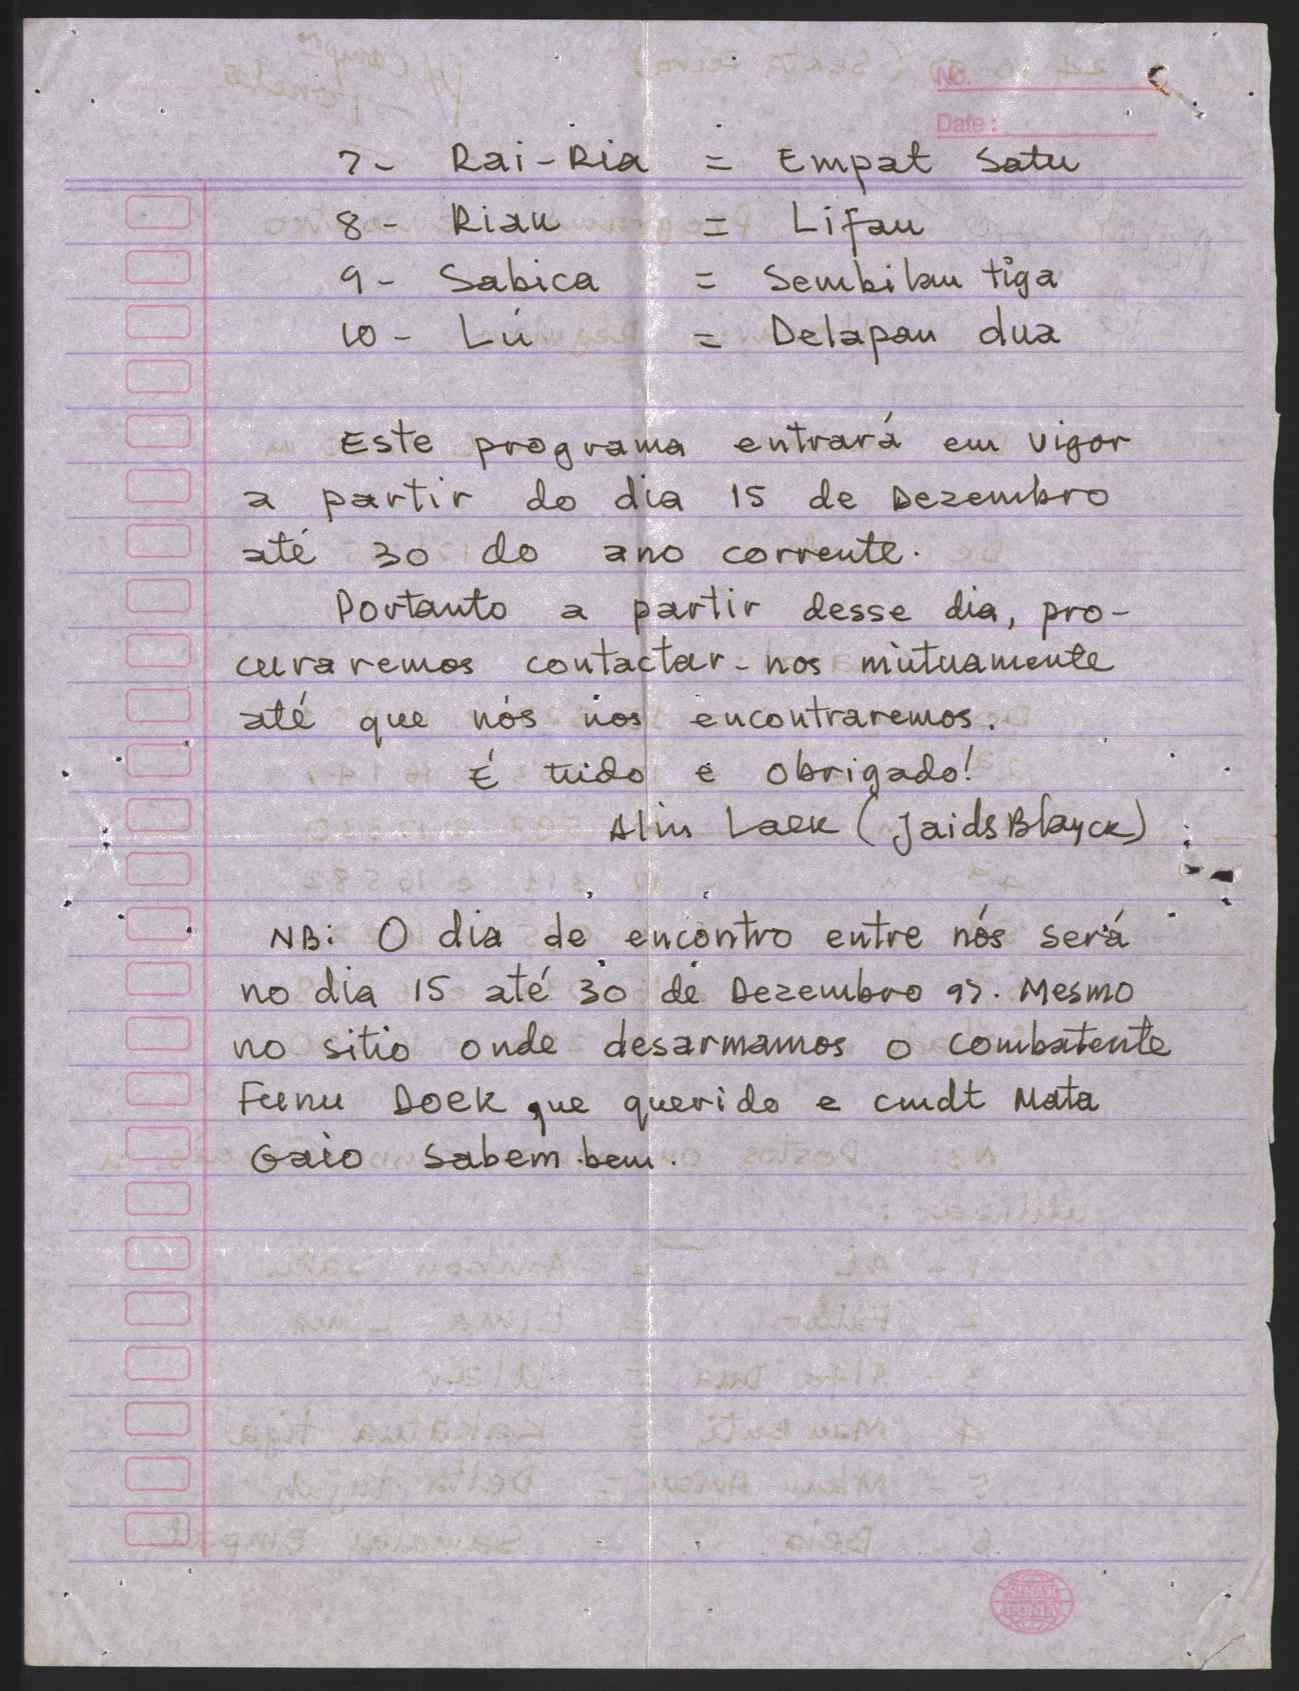 No.
Date :
7- Rai-Ria = Empat Satu
8- Riak = Lifau
9- Sabica = Sembilan tiga
10- Lú = Delapan dua
Este programa entrará em vigor
a partir do dia 15 de Dezembro
até 30 do ano corrente.
Portanto a partir desse dia, pro-
curaremos contactar-nos mùtuamente
até que nós nos encontraremos.
É tudo e obrigado!
Alin Laek (Jaids Blayck)
NB: O dia de encontro entre nós será
no dia 15 até 30 de Dezembro 97. Mesmo
no sitio onde desarmamos o combatente
Funu Doek que querido e cmdt Mata
Gaio sabem bem.